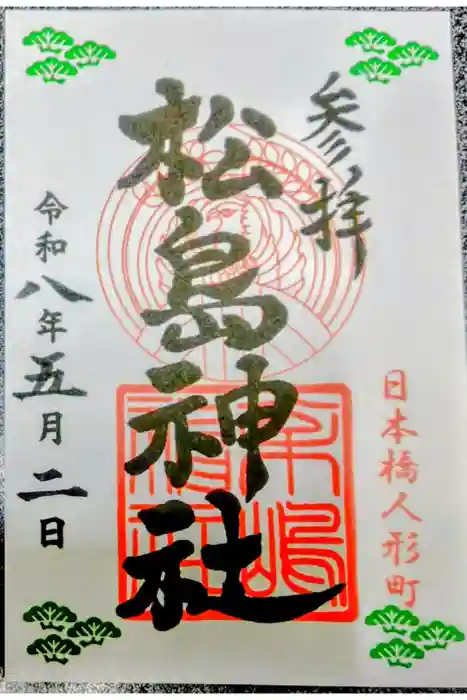 参拝
日本橋人形町
松島神社
令和八年五月二日